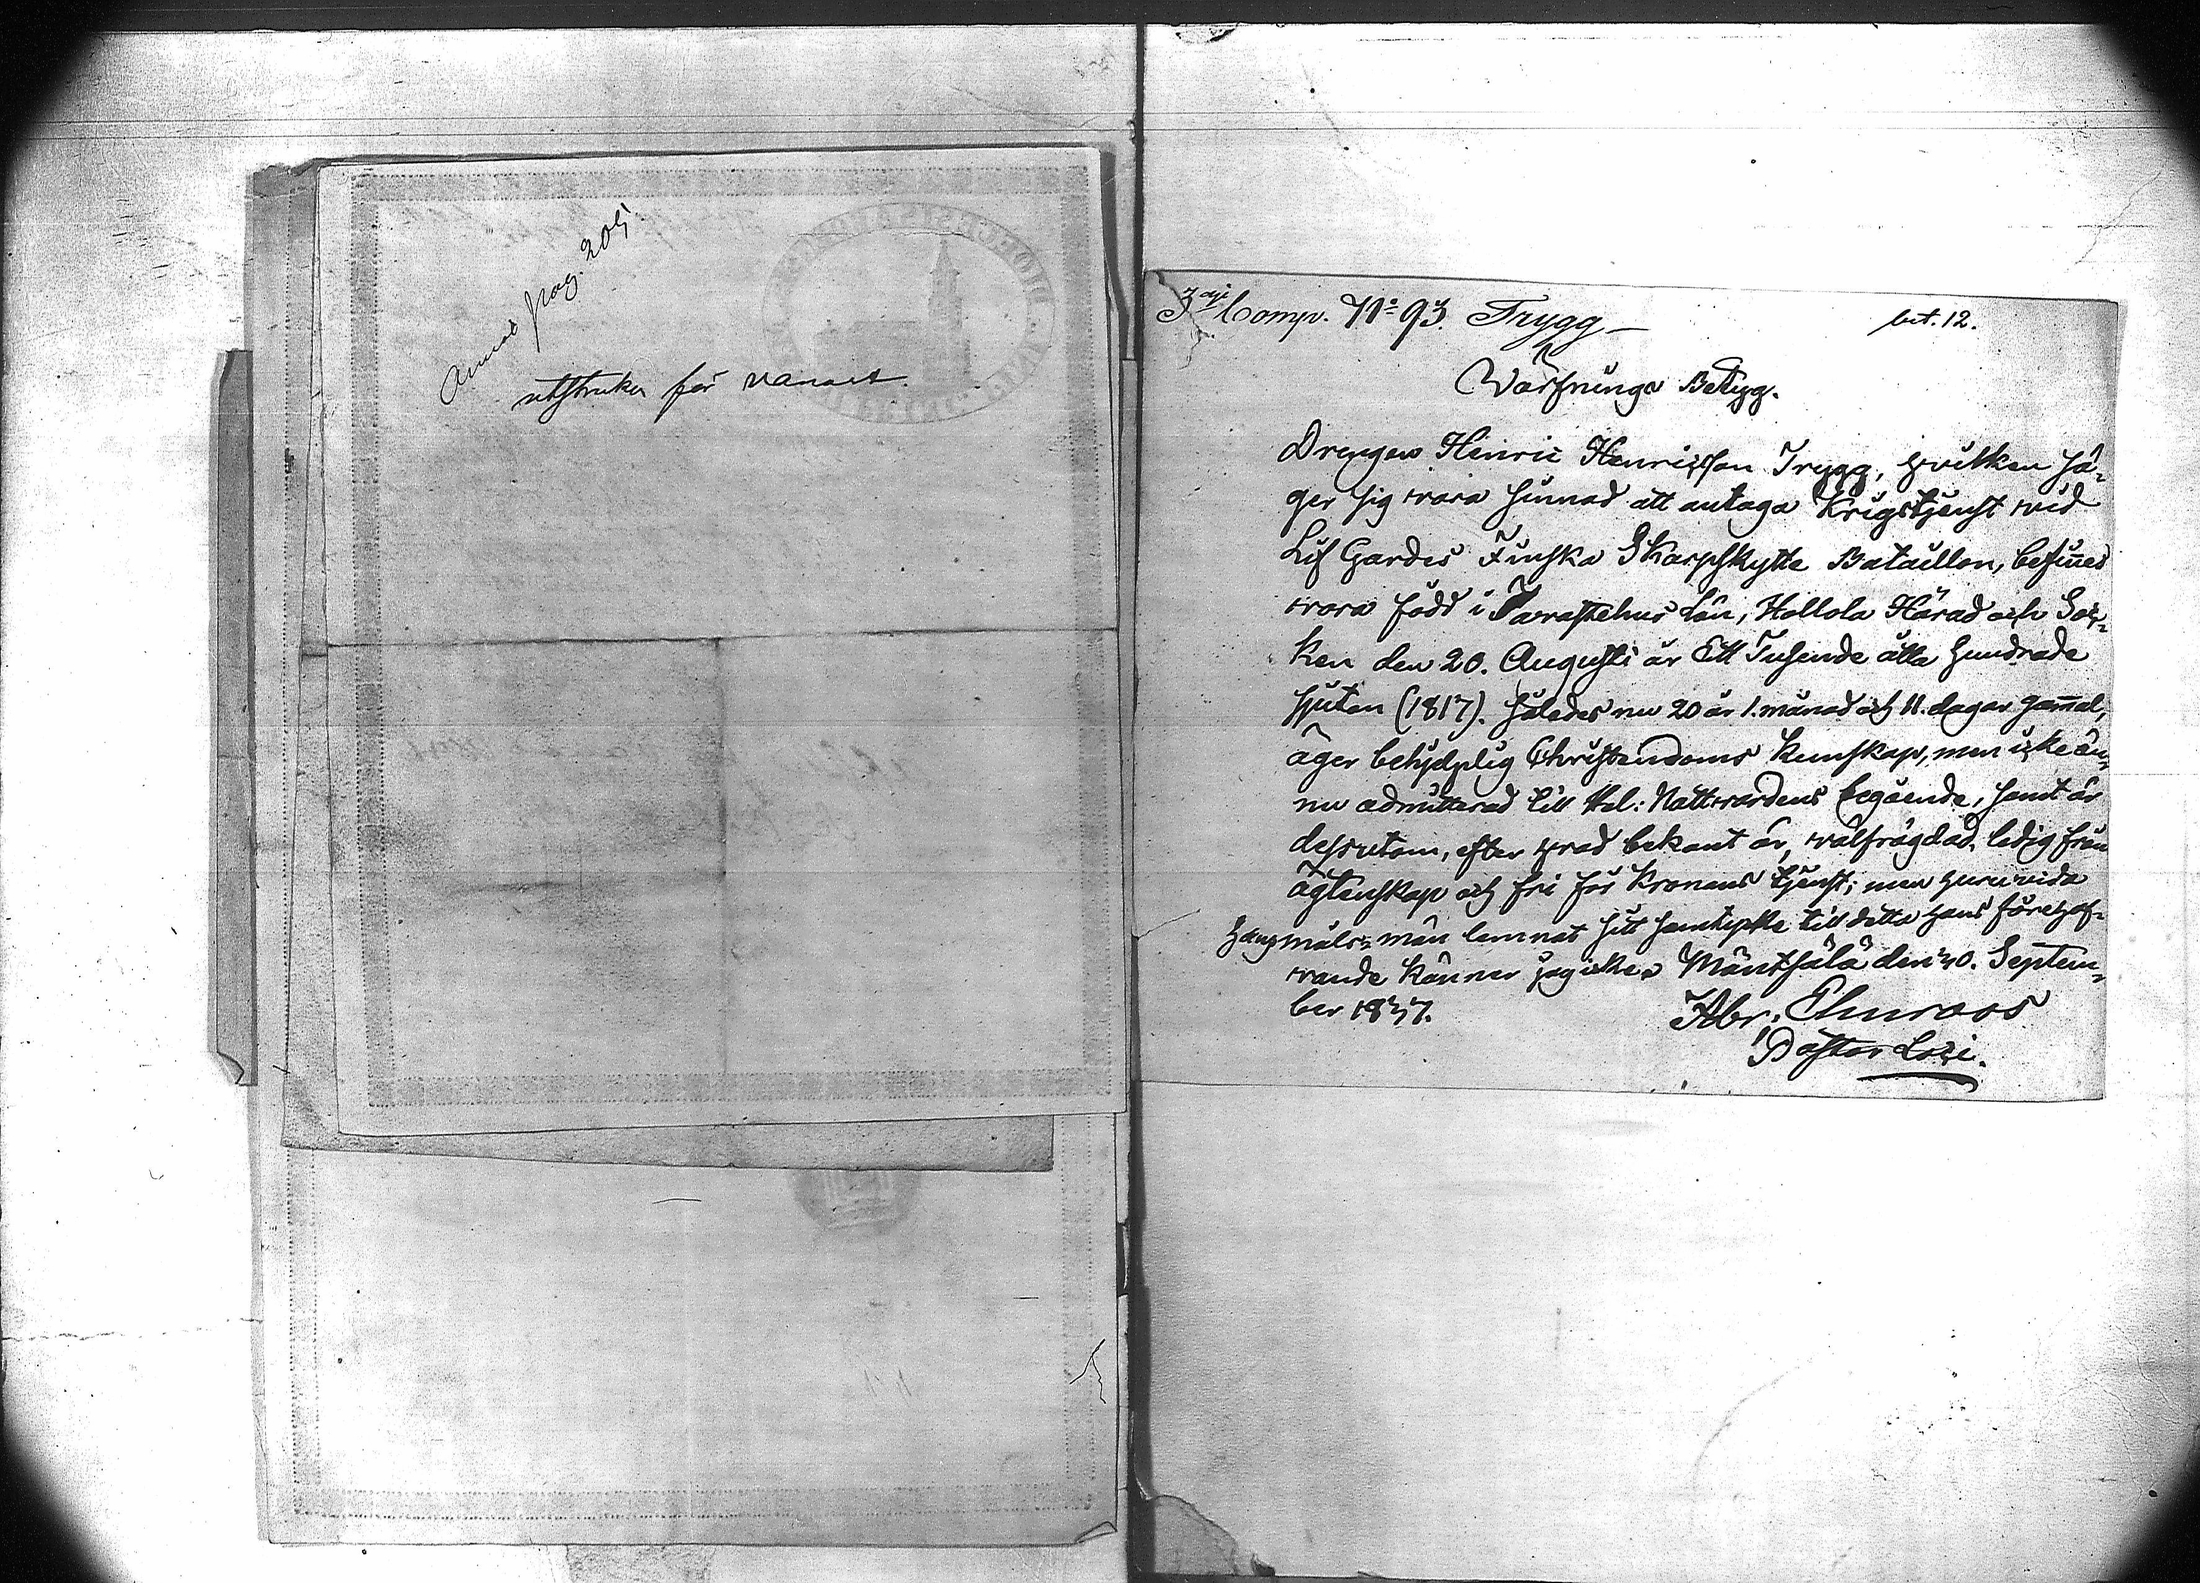 pag. 205.
utstruken för vanart.
3dje Comp. No 93. Trygg —
bet. 12.
Värfnings Betyg.
Drengen Hinric Henricsson Trygg, hvilken sä-
ger sig wara sinnad att antaga Krigstjenst wid
Lif Gardes Finska Skarpskytte Bataillon, befines
wara född i Tavastehus Län, Hollola Härad och Soc-
ken den 20. Augusti år Ett Tusende åtta hundrade
sjuton (1817). således nu 20 år 1. månad och 11. dagar gamal,
äger behjelplig Christendoms Kunskap, men icke än-
nu admitterad till Hel: Nattwardens begående, samt är
dessutom, efter hvad bekant är, wälfrägdad, ledig från
ägtenskap och fri för Kronans tjenst; men huruvida
hans målsmän lemnat sitt samtycke till detta hans förehaf-
wande känner jag icke. Mäntsälä den 30. Septem-
ber 1837.
Abr. Elmroos
Pastor Loci.